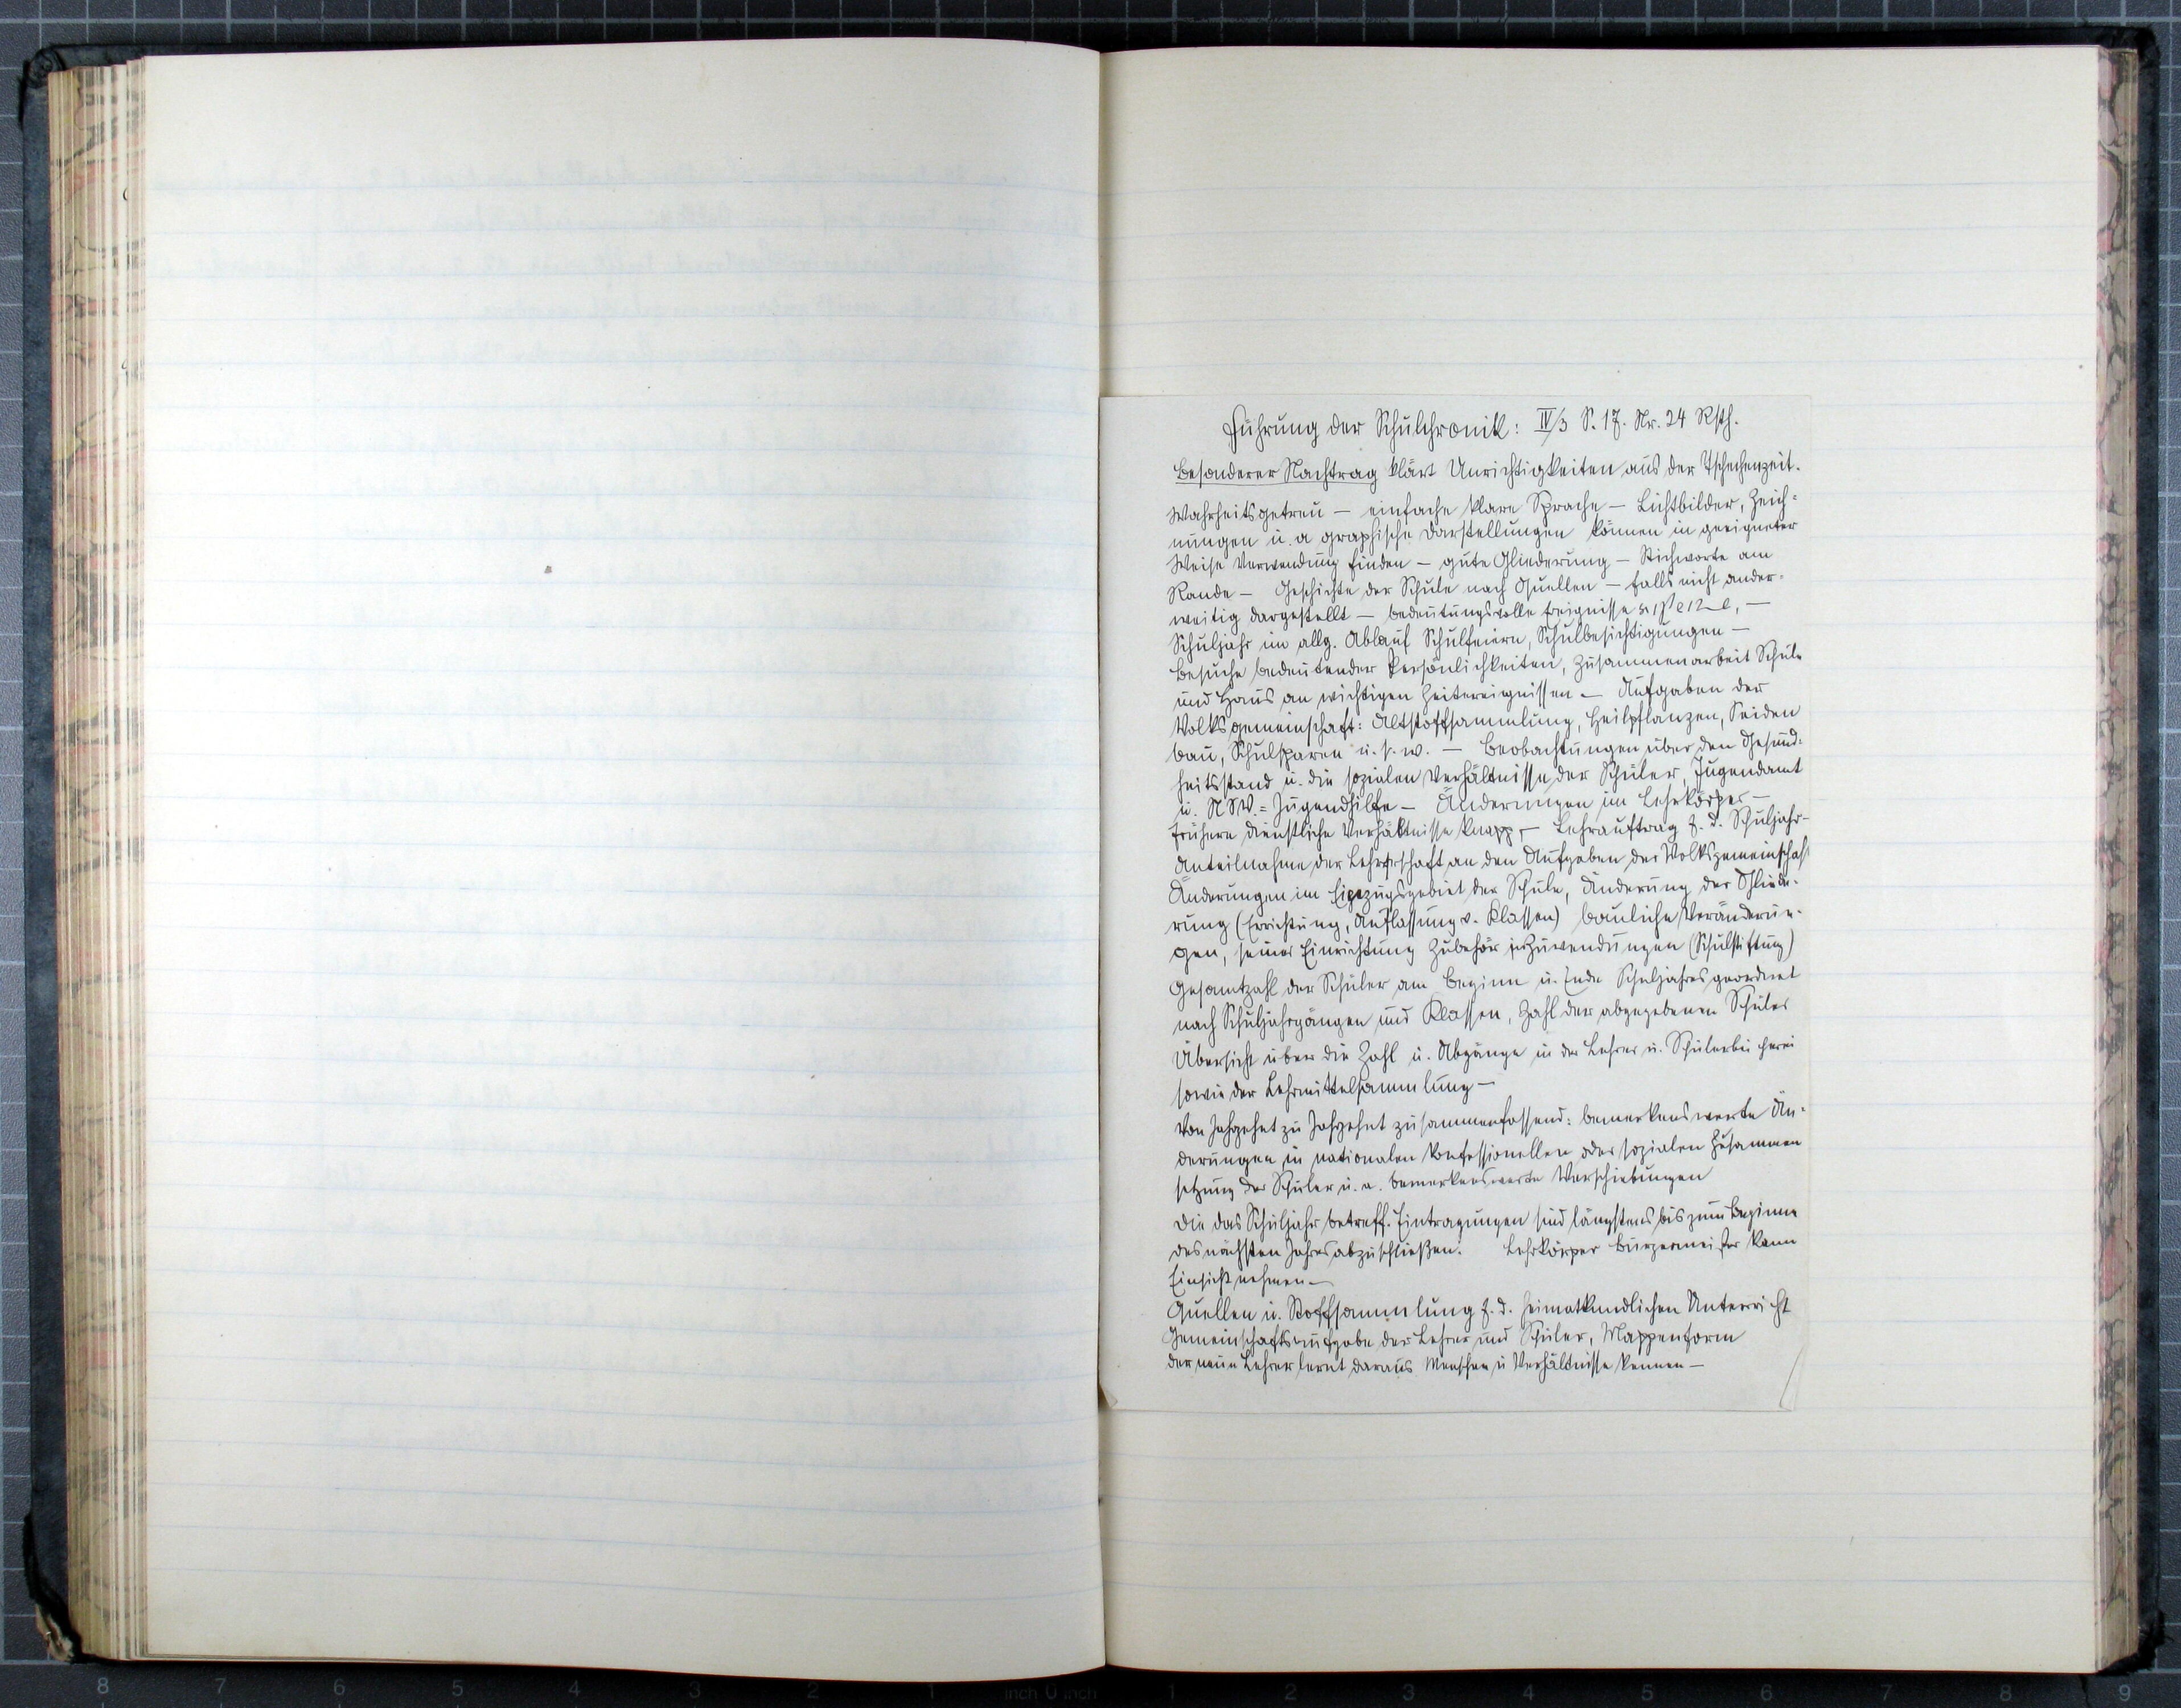 Führung der Schulchronik: IV/3 S. 17. Nr. 24 Rsth.
Besonderer Nachtrag klärt Unrichtigkeiten aus der Tschechenzeit.
Wahrheitsgetreu — einfache klare Sprache — Lichtbilder, Zeich-
nungen u. a graphische Darstellungen können in geeigneter
Weise Verwendung finden — gute Gliederung — Stichworte am
Rande — Geschichte der Schule nach Quellen — falls nicht ander-
weitig dargestellt — bedeutungsvolle Ereignisse
Schuljahr im allg. Ablauf Schulfeiern, Schulbesichtigungen —
Besuche bedeutender Persönlichkeiten, Zusammenarbeit Schule
und Haus an wichtigen Zeitereignissen — Aufgaben der
Volksgemeinschaft: Altstoffsammlung, Heilpflanzen, Seiden
bau, Schulsparen u. s. w. — Beobachtungen über den Gesund-
heitsstand u. die sozialen Verhältnisse der Schüler, Jugendamt
u. NSV.= Jugendhilfe — Änderungen im Lehrkörper —
frühere dienstliche Verhältnisse knapp — Lehrauftrag f. d. Schuljahr —
Anteilnahme der Lehrerschaft an den Aufgaben der Volksgemeinschaft
Änderungen im Einzugsgebiet der Schule, Änderung der Gliede-
rung (Errichtung, Auflassung v. Klassen) bauliche Veränderun-
gen, seiner Einrichtung Zubehör Zuwendungen (Schulstiftung)
Gesamtzahl der Schüler am Beginn u. Ende Schuljahres geordnet
nach Schuljahrgängen und Klassen, Zahl der abgegebenen Schüler
Übersicht über die Zahl u. Abgänge in der Lehrer u. Schülerbücherei
sowie der Lehrmittelsammlung —
Von Jahrzehnt zu Jahrzehnt zusammenfassend: bemerkenswerte Än-
derungen in nationalen konfessionellen oder sozialen Zusammen
setzung der Schüler u. a. bemerkenswerte Verschiebungen
Die das Schuljahr betreff. Eintragungen sind längstens bis zum Beginne
des nächsten Jahres abzuschließen. Lehrkörper Bürgermeister kann
Einsicht nehmen —
Quellen u. Stoffsammlung f. d. heimatkundlichen Unterricht
Gemeinschaftsaufgabe der Lehrer und Schüler, Mappenform
der neue Lehrer lernt daraus Menschen u Verhältnisse kennen —
8 7 6 5 4 3 2 1 inch 0 inch 1 2 3 4 5 6 7 8 9